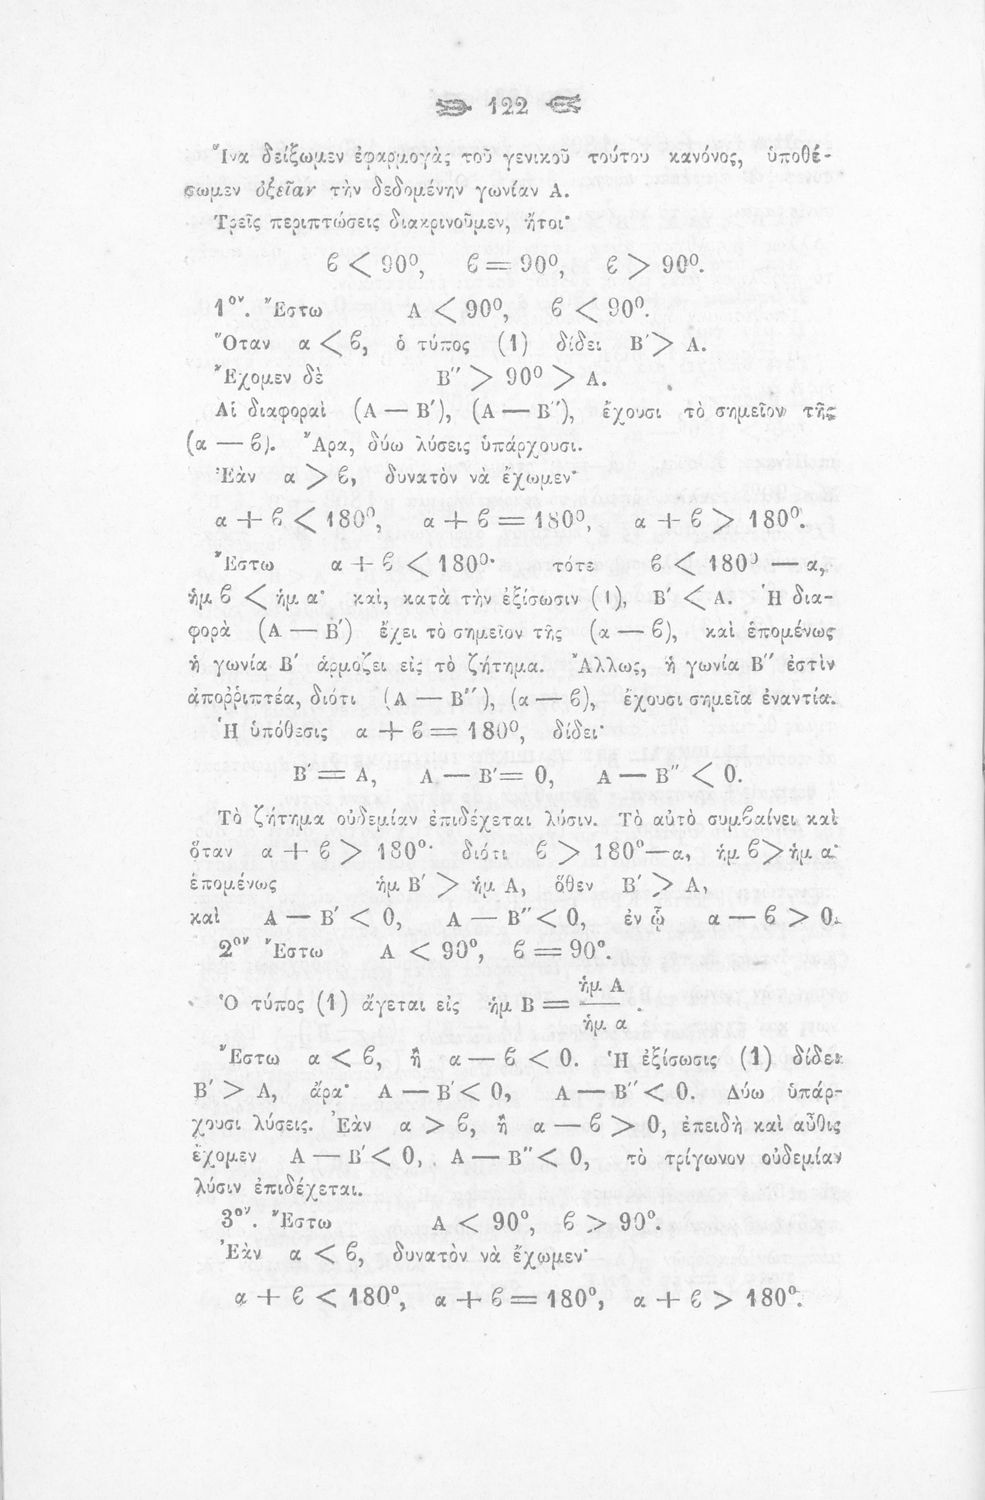 122
Ἵνα δείξωμεν ἐφαρμογὰς τοῦ γενικοῦ τούτου κανόνος, ὑποθέ-
σωμεν ὀξεῖαν τὴν δεδομένην γωνίαν Α.
Τρεῖς περιπτώσεις διακρινοῦμεν, ἤτοι·
ϐ < 90°, ϐ = 90°, ϐ > 90°.
1ον. Ἔστω Α < 90°, ϐ < 90°.
Ὅταν α < ϐ, ὁ τύπος (1) δίδει Β′ > Α.
Ἔχομεν δὲ Β″ > 90° > Α.
Αἱ διαφοραὶ (Α — Β′), (Α — Β″), ἔχουσι τὸ σημεῖον τῆς
(α — ϐ). Ἄρα, δύω λύσεις ὑπάρχουσι.
Ἐὰν α > ϐ, δυνατὸν νὰ ἔχωμεν·
α + ϐ < 180°, α + ϐ = 180°, α + ϐ > 180°.
Ἔστω α + ϐ < 180°· τότε ϐ < 180° — α,
ἡμ ϐ < ἡμ α· καὶ, κατὰ τὴν ἐξίσωσιν (1), Β′ < Α. Ἡ δια-
φορὰ (Α — Β′) ἔχει τὸ σημεῖον τῆς (α — ϐ), καὶ ἑπομένως
ἡ γωνία Β′ ἁρμόζει εἰς τὸ ζήτημα. Ἄλλως, ἡ γωνία Β″ ἐστὶν
ἀποῤῥιπτέα, διότι (Α — Β″), (α — ϐ), ἔχουσι σημεῖα ἐναντία.
Ἡ ὑπόθεσις α + ϐ = 180°, δίδει·
Β′ = Α, Α — Β′ = 0, Α — Β″ < 0.
Τὸ ζήτημα οὐδεμίαν ἐπιδέχεται λύσιν. Τὸ αὐτὸ συμϐαίνει καὶ
ὅταν α + ϐ > 180°· διότι ϐ > 180° — α, ἡμ ϐ > ἡμ α·
ἑπομένως ἡμ Β′ > ἡμ Α, ὅθεν Β′ > Α,
καὶ Α — Β′ < 0, Α — Β″ < 0, ἐν ᾧ α — ϐ > 0.
2ον Ἔστω Α < 90°, ϐ = 90°.
Ὁ τύπος (1) ἄγεται εἰς ἡμ Β = ἡμ Α / ἡμ α.
Ἔστω α < ϐ, ἢ α — ϐ < 0. Ἡ ἐξίσωσις (1) δίδει
Β′ > Α, ἄρα· Α — Β′ < 0, Α — Β″ < 0. Δύω ὑπάρ-
χουσι λύσεις. Ἐὰν α > ϐ, ἢ α — ϐ > 0, ἐπειδὴ καὶ αὖθις
ἔχομεν Α — Β′ < 0, Α — Β″ < 0, τὸ τρίγωνον οὐδεμίαν
λύσιν ἐπιδέχεται.
3ον. Ἔστω Α < 90°, ϐ > 90°.
Ἐὰν α < ϐ, δυνατὸν νὰ ἔχωμεν·
α + ϐ < 180°, α + ϐ = 180°, α + ϐ > 180°.